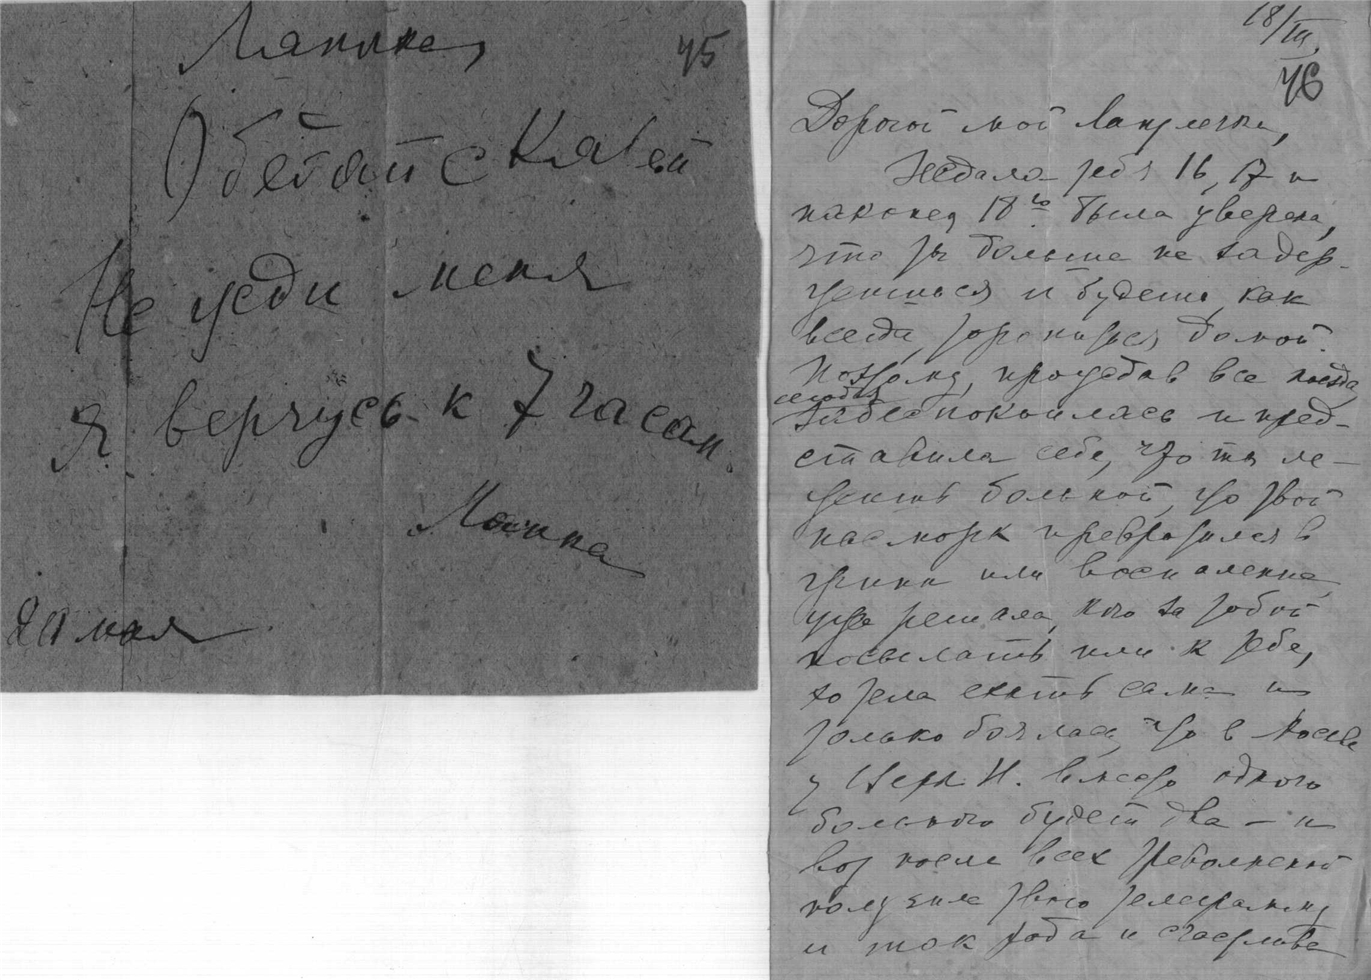 45
Обедай с Клавой
Не жди меня
Я вернусь к 7 часам.
Мамка
20 мая
18/III
46
Дорогой мой
Ждала тебя 16, 17 и
наконец 18го была уверена,
что ты больше не задер-
жишься и будешь, как
всегда, торопиться домой.
Поэтому, прождав все поезда,
сегодня
забеспокоилась и пред-
ставила себе, что ты ле-
жишь больной, что твой
насморк превратился в
грипп или воспаление,
уже решала, кого за тобой
посылать или к тебе,
хотела ехать сама и
только боялась, что в Москве
у И. вместо одного
больного будет два – и
вот после всех треволнений
получила твою телеграмму
и так рада и счастлива